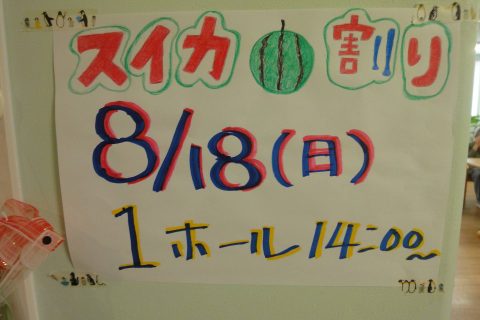 スイカ割り
8/18(日)
1ホール 14:00~